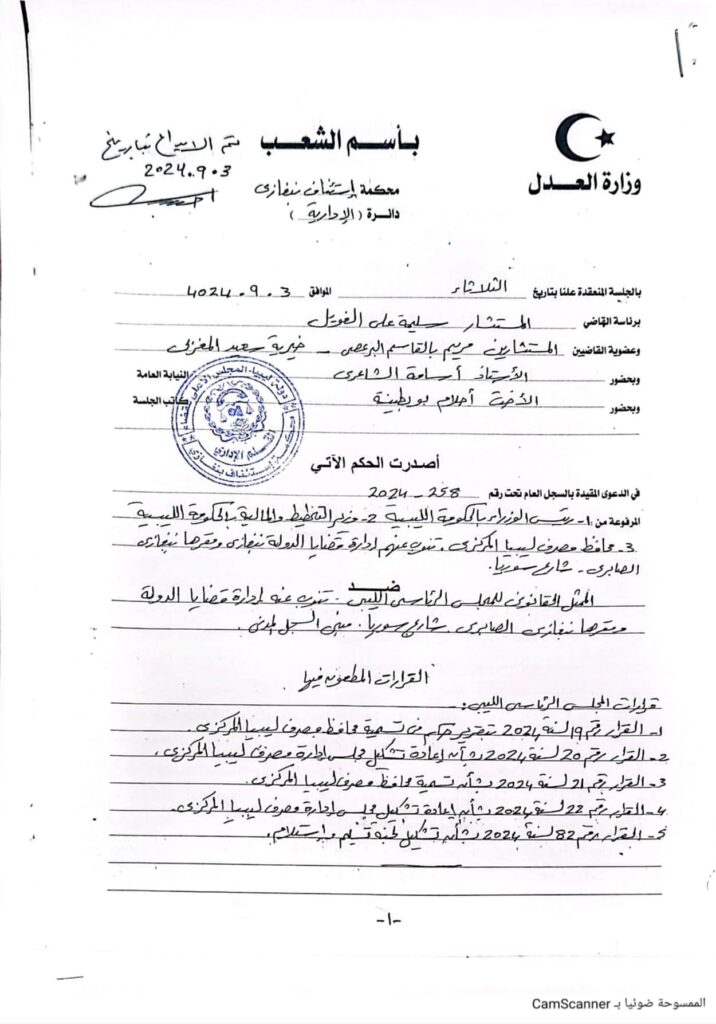 وزارة العدل
بأسم الشعب
تم الايداع بتاريخ
2024.9.03
محكمة إستئناف بنغازى
دائرة (الإدارية)
بالجلسة المنعقدة علنا بتاريخ الثلاثاء الموافق 4024.9.03
برئاسة القاضي المستشار سليمة على الغويل
وعضوية القاضيين المستشارين مريم بالقاسم البرعصى - خيرية سعد المغربى
وبحضور الأستاذ أسامة الشاعرى النيابة العامة
وبحضور الأخت أحلام بوبطينة كاتب الجلسة
أصدرت الحكم الآتي
في الدعوى المقيدة بالسجل العام تحت رقم 258-2024
المرفوعة من 1- رئيس الوزراء بالحكومة الليبية 2- وزير التخطيط والمالية بالحكومة الليبية
3- محافظ مصرف ليبيا المركزى. تنوب عنهم إدارة قضايا الدولة بنغازى ومقرها بنغازى
الصابرى. شارع سوريا.
ضد
الممثل القانونى للمجلس الرئاسى الليبى. تنوب عنه إدارة قضايا الدولة
ومقرها بنغازى الصابرى شارع سوريا. مبنى السجل المدنى.
القرارات المطعون فيها
قرارات المجلس الرئاسى الليبى:
1- القرار رقم 19 لسنة 2024 بتقرير حكم فى تسمية محافظ مصرف ليبيا المركزى.
2- القرار رقم 20 لسنة 2024 بشأن إعادة تشكيل مجلس إدارة مصرف ليبيا المركزى.
3- القرار رقم 21 لسنة 2024 بشأن تسمية محافظ مصرف ليبيا المركزى.
4- القرار رقم 22 لسنة 2024 بشأن إعادة تشكيل مجلس إدارة مصرف ليبيا المركزى.
5- القرار رقم 82 لسنة 2024 بشأن تشكيل لجنة تسليم وإستلام.
-1-
الممسوحة ضوئيا بـ CamScanner